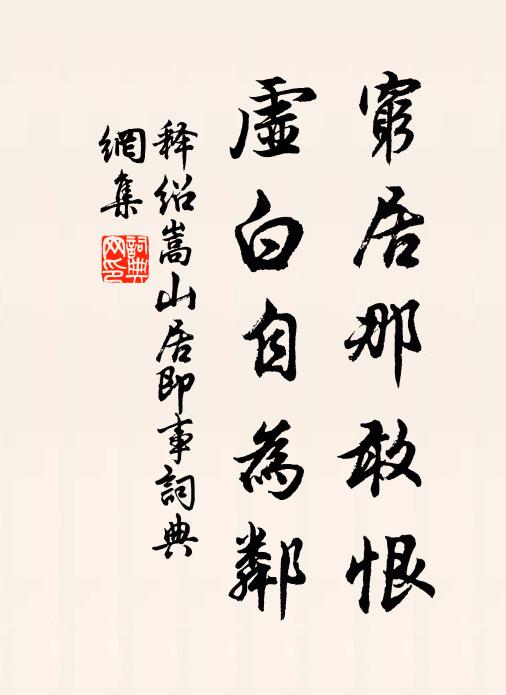 窮居那敢恨
虛白自為鄰
释绍嵩山居即事詞典
網集
詞典
网印